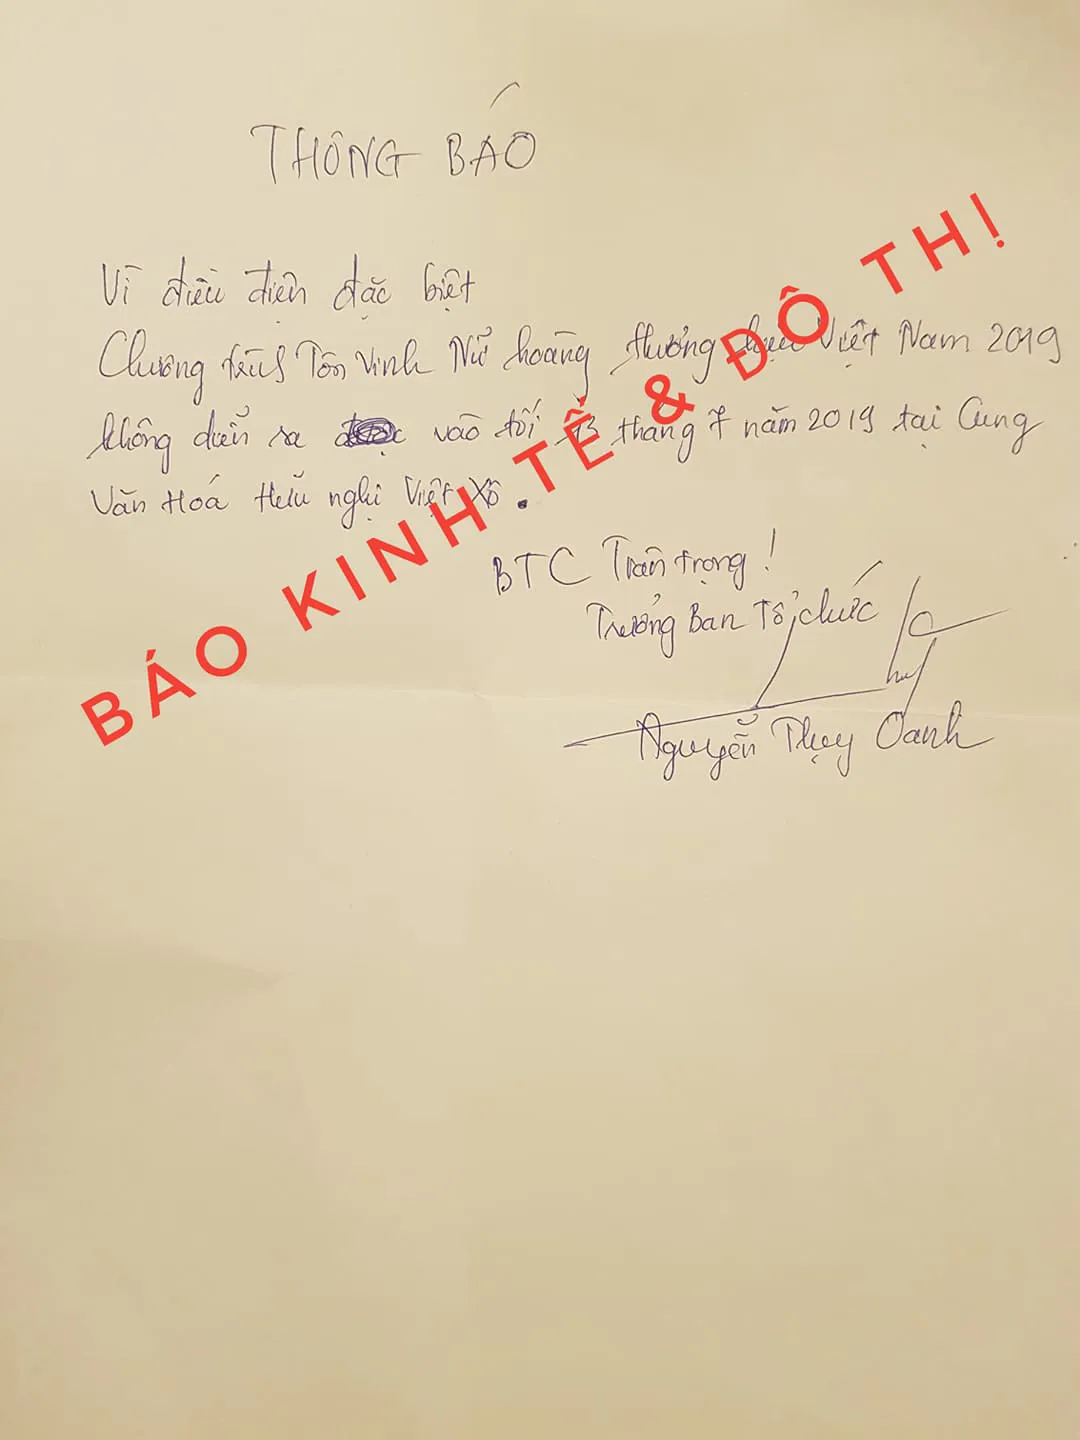 THÔNG BÁO
Vì điều điện đặc biệt
Chương trình Tôn Vinh Nữ hoàng thương hiệu Việt Nam 2019
không diễn ra vào tối 13 tháng 7 năm 2019 tại Cung
Văn Hoá Hữu nghị Việt Xô.
BTC Trân trọng!
Trưởng Ban Tổ chức
Nguyễn Thụy Oanh
BÁO KINH TẾ & ĐÔ THỊ